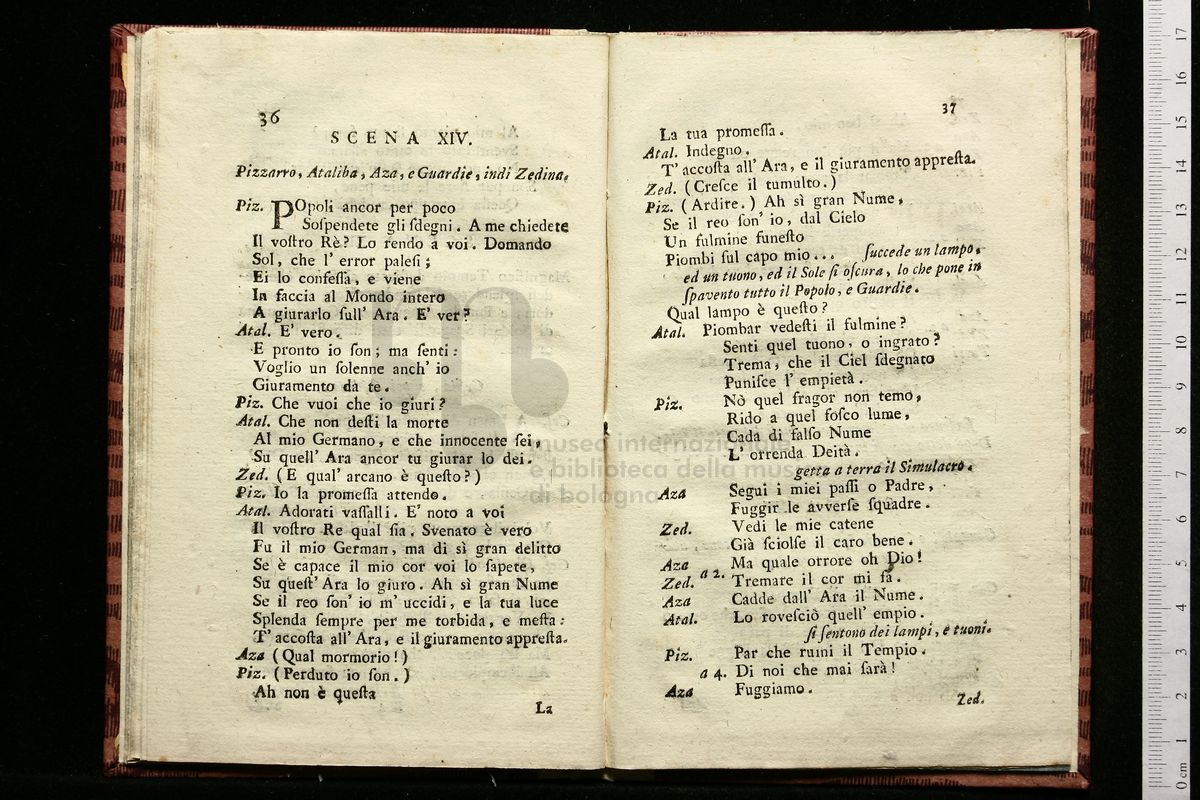 36
SCENA XIV.
Pizzarro, Ataliba, Aza, e Guardie, indi Zedina.
Piz. POpoli ancor per poco
Soſpendete gli ſdegni. A me chiedete
Il voſtro Rè? Lo rendo a voi. Domando
Sol, che l' error paleſi;
Ei lo confeſſa, e viene
In faccia al Mondo intero
A giurarlo ſull' Ara. E' ver?
Atal. E' vero.
E pronto io ſon; ma ſenti:
Voglio un ſolenne anch' io
Giuramento da te.
Piz. Che vuoi che io giuri?
Atal. Che non deſti la morte
Al mio Germano, e che innocente ſei,
Su quell' Ara ancor tu giurar lo dei.
Zed. (E qual' arcano è queſto?)
Piz. Io la promeſſa attendo.
Atal. Adorati vaſſalli. E' noto a voi
Il voſtro Re qual ſia. Svenato è vero
Fu il mio German, ma di sì gran delitto
Se è capace il mio cor voi lo ſapete,
Su queſt' Ara lo giuro. Ah sì gran Nume
Se il reo ſon' io m' uccidi, e la tua luce
Splenda ſempre per me torbida, e meſta:
T' accoſta all' Ara, e il giuramento appreſta.
Aza (Qual mormorio!)
Piz. (Perduto io ſon.)
Ah non è queſta
La
37
La tua promeſſa.
Atal. Indegno.
T' accoſta all' Ara, e il giuramento appreſta.
Zed. (Creſce il tumulto.)
Piz. (Ardire.) Ah sì gran Nume,
Se il reo ſon' io, dal Cielo
Un fulmine funeſto
Piombi ſul capo mio... ſuccede un lampo,
ed un tuono, ed il Sole ſi oſcura, lo che pone in
ſpavento tutto il Popolo, e Guardie.
Qual lampo è queſto?
Atal. Piombar vedeſti il fulmine?
Senti quel tuono, o ingrato?
Trema, che il Ciel ſdegnato
Puniſce l' empietà.
Piz. Nò quel fragor non temo,
Rido a quel foſco lume,
Cada di falſo Nume
L' orrenda Deità.
getta a terra il Simulacro.
Aza Segui i miei paſſi o Padre,
Fuggir le avverſe ſquadre.
Zed. Vedi le mie catene
Già ſciolſe il caro bene.
Aza Ma quale orrore oh Dio!
Zed. a 2. Tremare il cor mi fa.
Aza Cadde dall' Ara il Nume.
Atal. Lo roveſciò quell' empio.
ſi ſentono dei lampi, e tuoni.
Piz. Par che ruini il Tempio.
a 4. Di noi che mai ſarà!
Aza Fuggiamo.
Zed.
museo internazionale
e biblioteca della mus
di bologna
0 cm 1 2 3 4 5 6 7 8 9 10 11 12 13 14 15 16 17